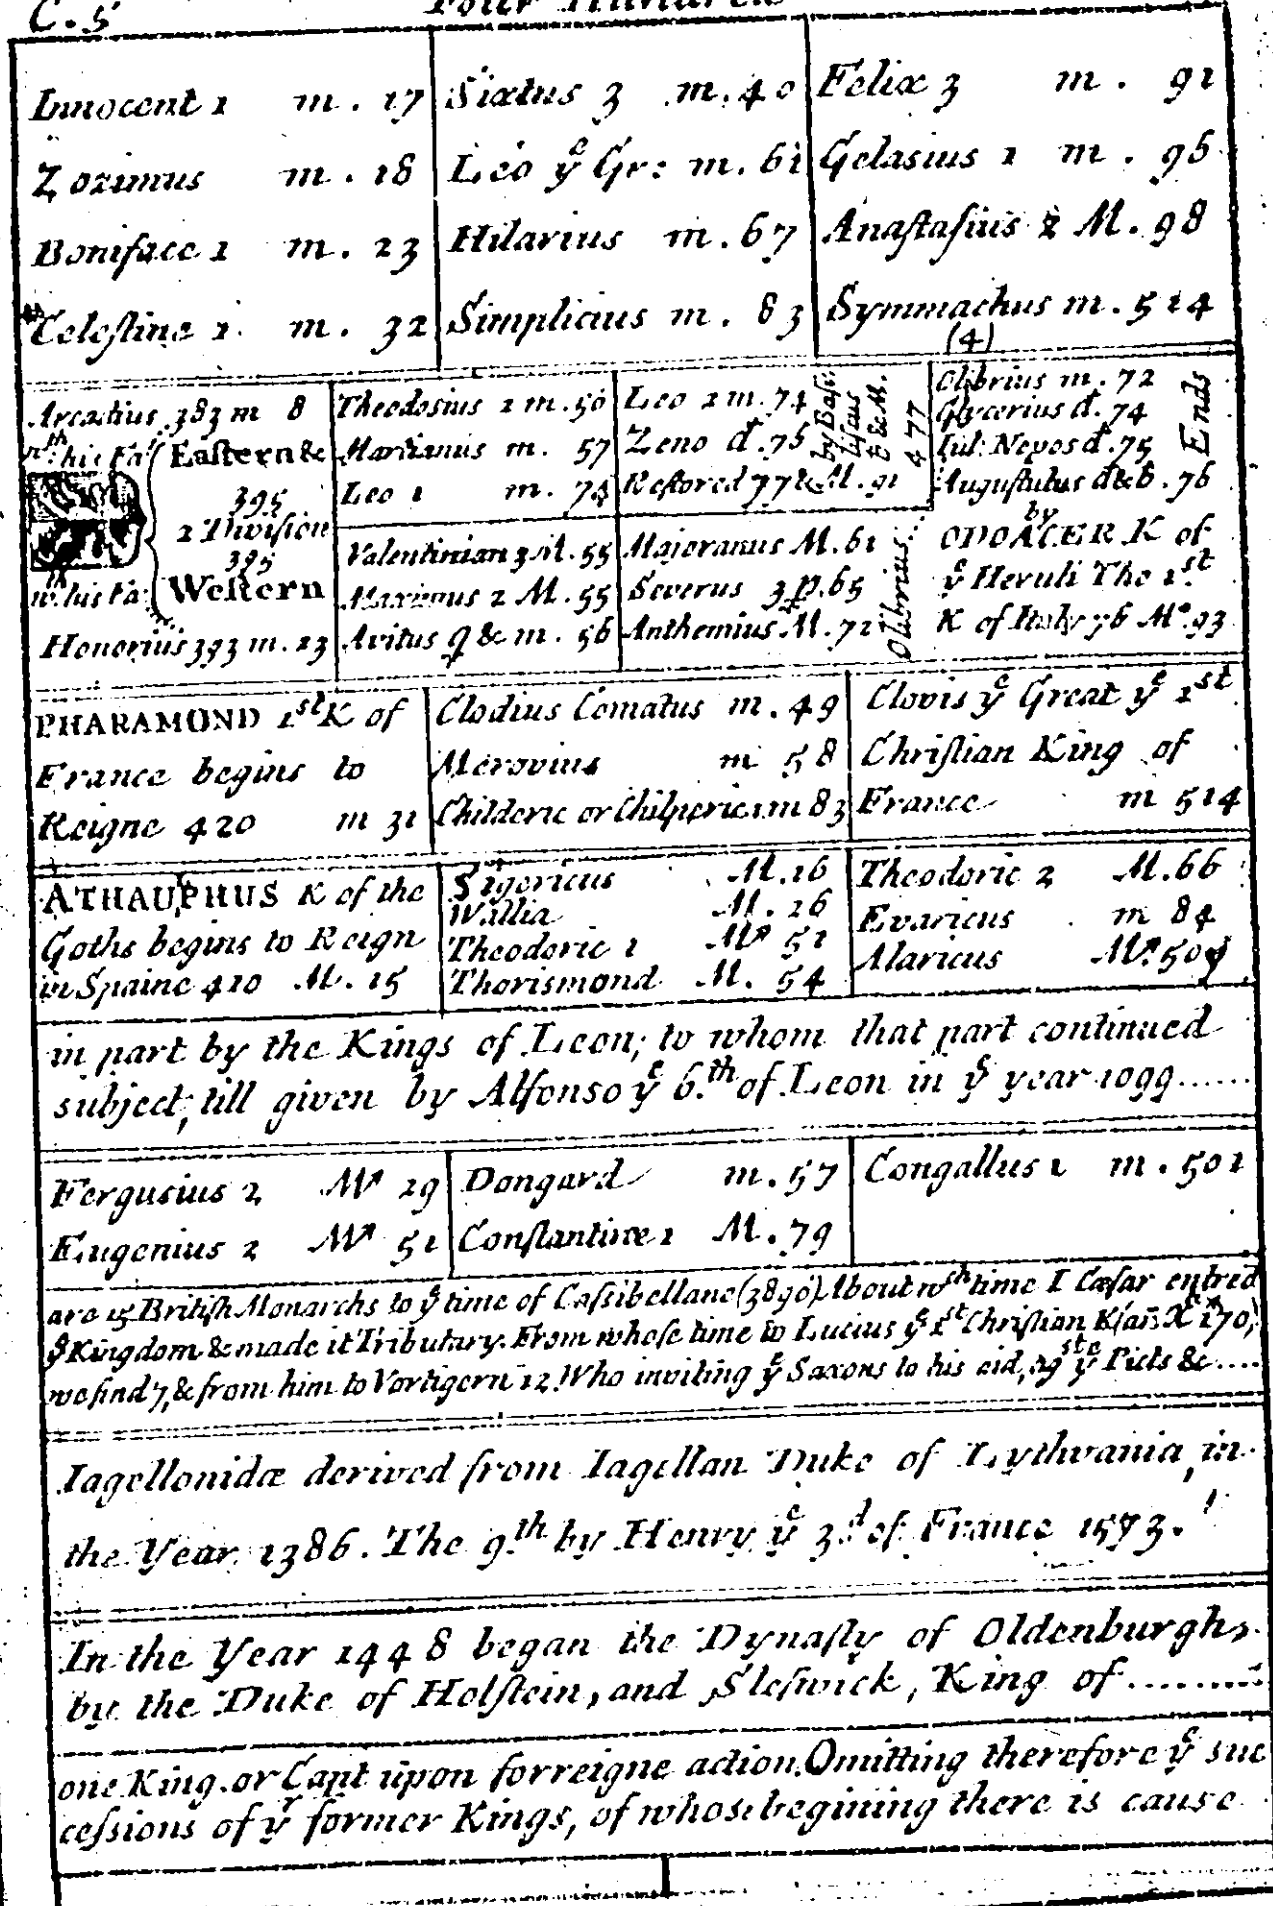 C. 5
Four Hundred
Innocent 1 m. 17
Zozimus m. 18
Boniface 1 m. 23
Celeſtine 1. m. 32
Sixtus 3 m. 40
Leo yᵉ Gr: m. 61
Hilarius m. 67
Simplicius m. 83
Felix 3 m. 91
Gelasius 1 m. 96
Anaſtaſius 2 M. 98
Symmachus m. 514
(4)
Arcadius 383 m 8
his Fa
Eaſtern &
395
2 Diviſion
395
Weſtern
his Fa:
Honorius 393 m. 23
Theodosius 2 m. 50
Martianus m. 57
Leo 1 m. 74
Valentinian 3 M. 55
Maximus 2 M. 55
Avitus q & m. 56
Leo 2 m. 74
Zeno d. 76
Reſtored 77 & M. 91
by Baſi:
liſcus
E & M.
477
Majoranus M. 61
Severus 3 p. 65
Anthemius M. 72
Olibrius..
Olibrius m. 72
Glycerius d. 74
Jul: Nepos d. 75
Auguſtulus d & b. 76
Ends
by
ODOACER K of
yᵉ Heruli The 1ˢᵗ
K of Italy 76 Mᵒ. 93
PHARAMOND 1ˢᵗ K of
France begins to
Reigne 420 m 31
Clodius Comatus m. 49
Merovius m 58
Childeric or Chilperic 1 m 83
Clovis yᵉ Great yᵉ 1ˢᵗ
Chriſtian King of
France m 514
ATHAUPHUS K of the
Goths begins to Reign
in Spaine 410 M. 15
Sigericus M. 16
Wallia M. 26
Theodoric 1 Mʳ 51
Thorismond M. 54
Theodoric 2 M. 66
Evaricus m 84
Alaricus Mʳ. 507
in part by the Kings of Leon; to whom that part continued
subject, till given by Alfonso yᵉ 6.ᵗʰ of Leon in yᵉ year 1099......
Fergusius 2 Mʳ 29
Eugenius 2 Mʳ 51
Dongard m. 57
Conſtantine 1 M. 79
Congallus 1 m. 501
are 15 Britiſh Monarchs to yᵉ time of Caſſibellane (3890) About wᶜʰ time I Cæſar entred
yᵉ Kingdom & made it Tributary. From whoſe time to Lucius yᵉ 1ˢᵗ Chriſtian K (an: Xᵗ 170,)
we find 7, & from him to Vortigern 12. Who inviting yᵉ Saxons to his aid, agˢᵗ yᵉ Picts &c....
Iagellonidæ derived from Iagellan Duke of Lythvania, in
the Year 1386. The 9.ᵗʰ by Henry yᵉ 3.ᵈ of France 1573.
In the Year 1448 began the Dynaſty of Oldenburgh,
by the Duke of Holſtein, and Sleſwick, King of .........
one King. or Capt upon forreigne action. Omitting therefore yᵉ suc
ceſsions of yʳ former Kings, of whose begining there is cause